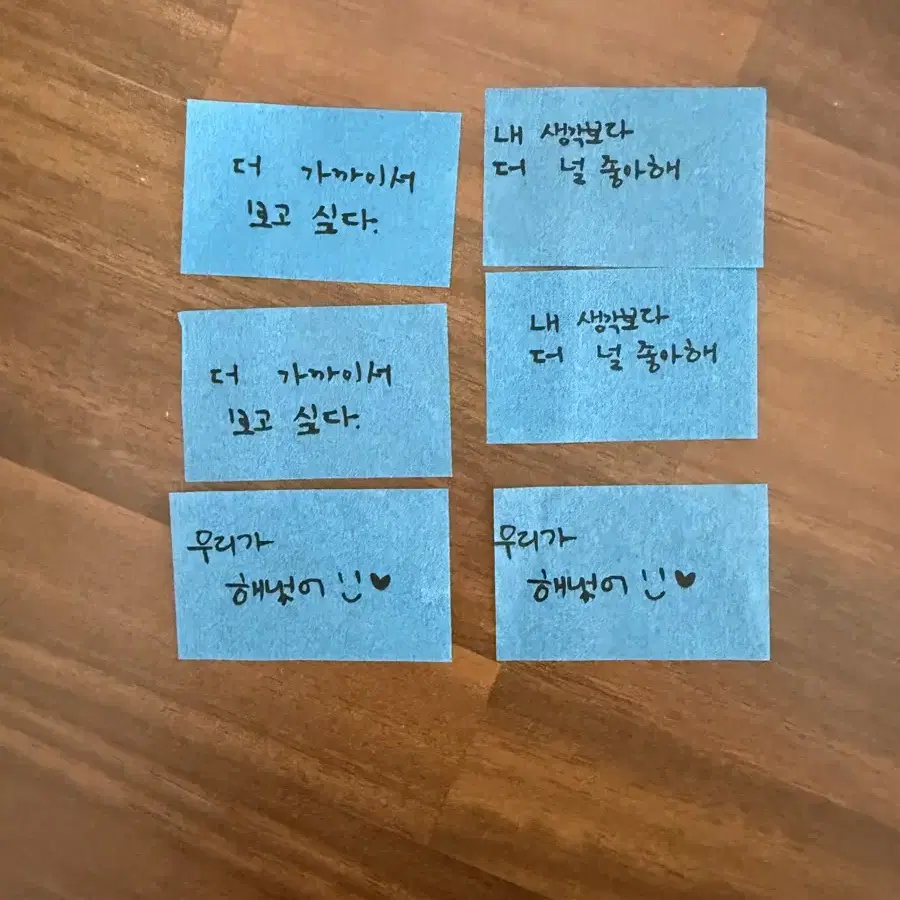 더 가까이서
보고 싶다.
내 생각보다
더 널 좋아해
더 가까이서
보고 싶다.
내 생각보다
더 널 좋아해
우리가
해냈어 :) ♥
우리가
해냈어 :) ♥